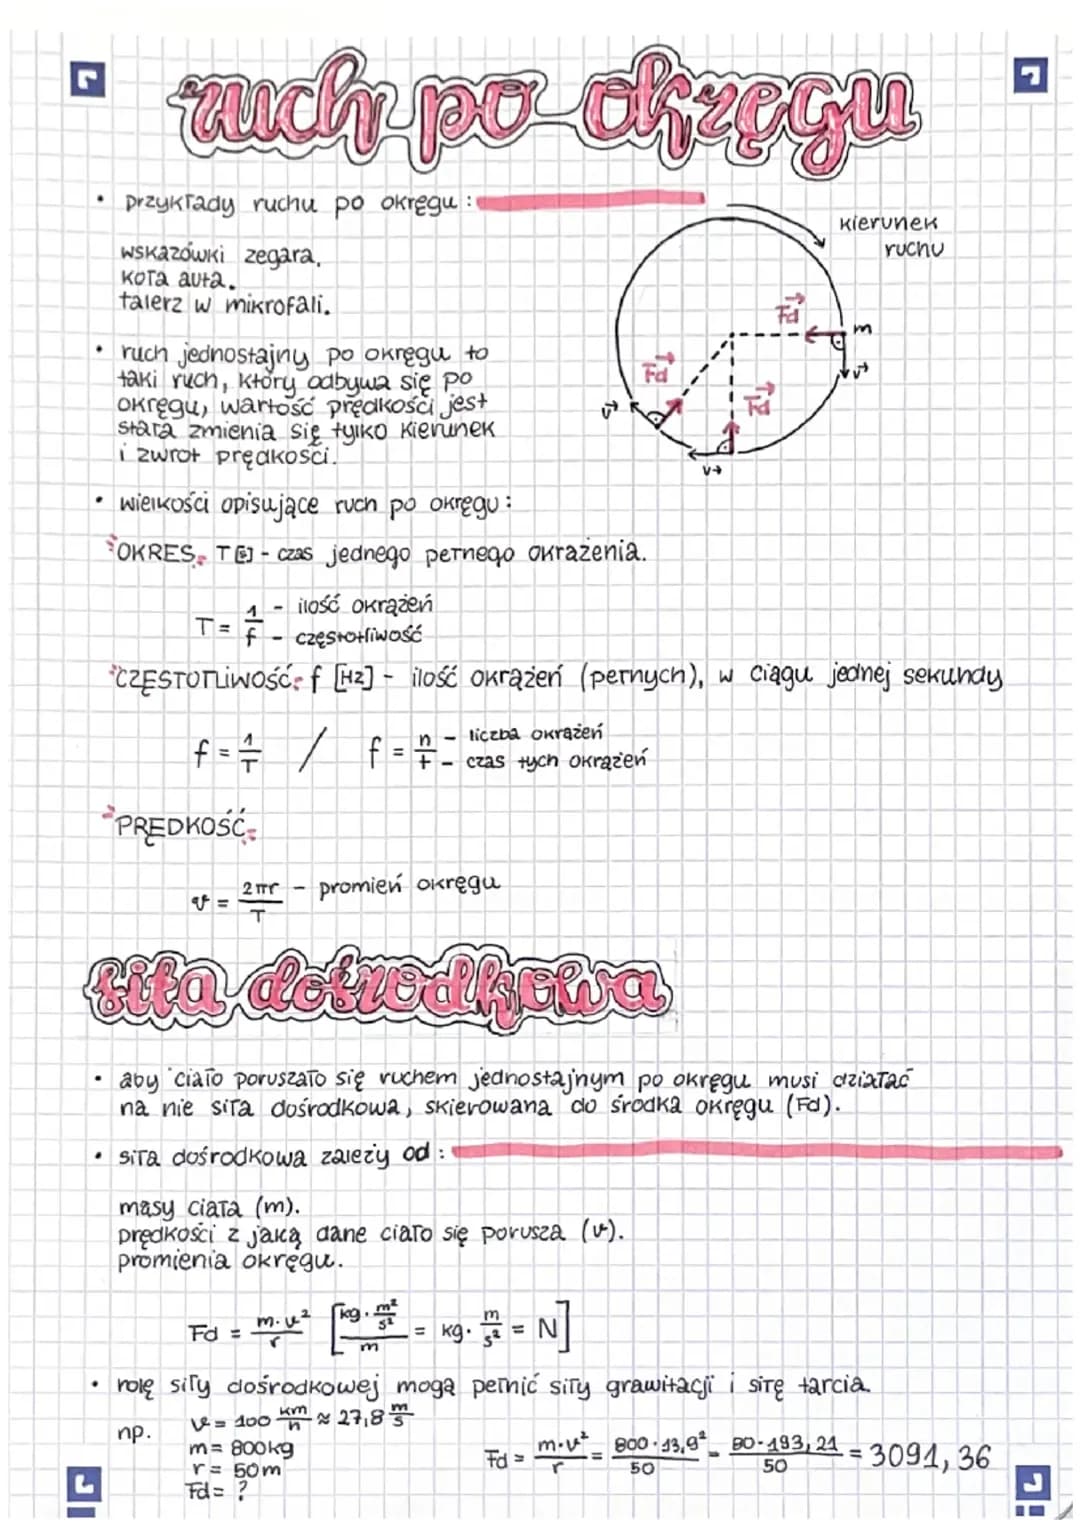 ruch po okręgu
• przykłady ruchu po okręgu :
wskazówki zegara.
koła auta.
talerz w mikrofali.
kierunek
ruchu
Fd
m
v
Fd
v
Fd
v
• ruch jednostajny po okręgu to
taki ruch, który odbywa się po
okręgu, wartość prędkości jest
stała zmienia się tylko kierunek
i zwrot prędkości.
• wielkości opisujące ruch po okręgu :
OKRES T [s] - czas jednego pełnego okrążenia.
T = 1/f - ilość okrążeń
- częstotliwość
CZĘSTOTLIWOŚĆ f [Hz] - ilość okrążeń (pełnych), w ciągu jednej sekundy
f = 1/T / f = n/t - liczba okrążeń
- czas tych okrążeń
PRĘDKOŚĆ
v = 2πr/T - promień okręgu
siła dośrodkowa
• aby ciało poruszało się ruchem jednostajnym po okręgu musi działać
na nie siła dośrodkowa, skierowana do środka okręgu (Fd).
• siła dośrodkowa zależy od :
masy ciała (m).
prędkości z jaką dane ciało się porusza (v).
promienia okręgu.
Fd = m·v²/r [kg · m²/s² / m = kg · m/s² = N]
• rolę siły dośrodkowej mogą pełnić siły grawitacji i siłę tarcia.
np.
v = 100 km/h ≈ 27,8 m/s
m = 800kg
r = 50m
Fd = ?
Fd = m·v²/r = 800·13,9²/50 = 80·193,21/50 = 3091,36